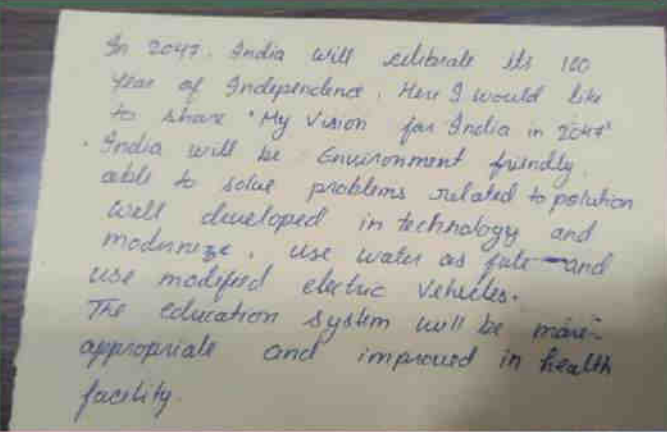 In 2047, India will celibrate its 100
Year of Independence. Here I would like
to share "My Vision for India in 2047"
India will be Environment friendly,
able to solve problems related to polution
well developed in technology and
modernize, use water as fule and
use modified electric Vehicles.
The education system will be more
appropriate and improved in health
facility.